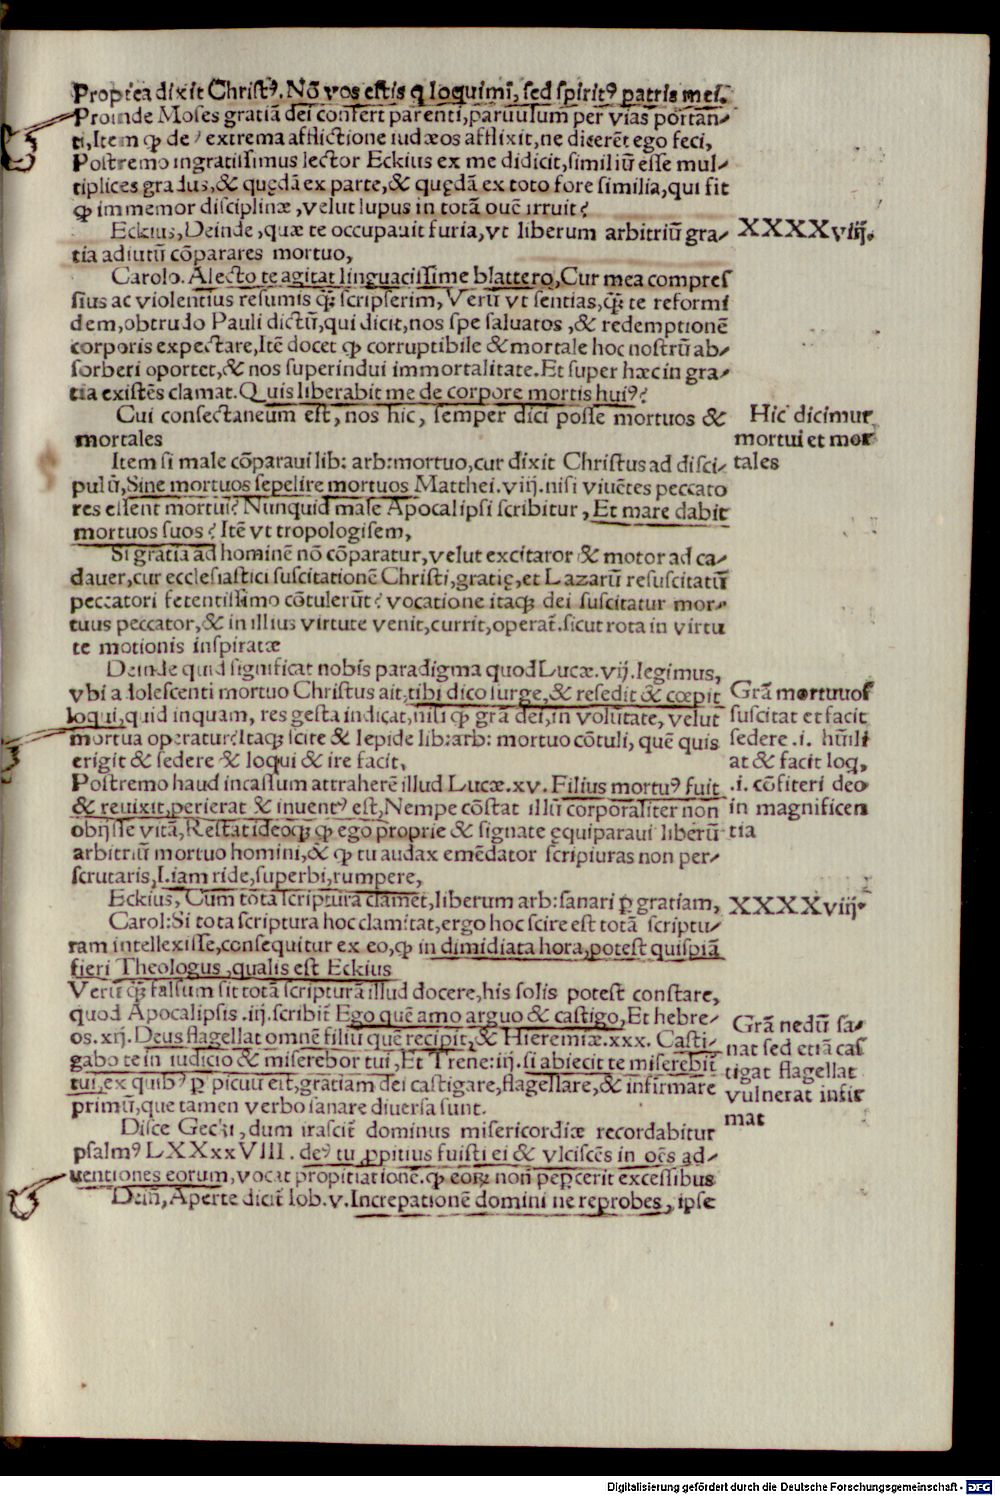 Propterea dixit Christꝰ. Nō vos estis q̄ loquimī, sed spiritꝰ patris mei.
Proinde Moses gratiā dei confert parenti, paruulum per vias portan⸗
ti, Item ꝙ de⸗ extrema afflictione iudæos afflixit, ne diserēt ego feci,
Postremo ingratissimus lector Eckius ex me didicit, similiū esse mul⸗
tiplices gradus, & quędā ex parte, & quędā ex toto fore similia, qui fit
ꝙ immemor disciplinæ, velut lupus in totā ouē irruit?
Eckius, Deinde, quæ te occupauit furia, vt liberum arbitriū gra⸗
tia adiutū cōparares mortuo,
XXXXviij.
Carolo. Alecto te agitat linguacissime blattero, Cur mea compres
sius ac violentius resumis ꝗ̃ scripserim, Verū vt sentias, ꝗ̃ te reformi
dem, obtrudo Pauli dictū, qui dicit, nos spe saluatos, & redemptionē
corporis expectare, Itē docet ꝙ corruptibile & mortale hoc nostrū ab⸗
sorberi oportet, & nos superindui immortalitate. Et super hæc in gra⸗
tia existēs clamat. Quis liberabit me de corpore mortis huiꝰ?
Cui consectaneum est, nos hic, semper dici posse mortuos &
mortales
Hic dicimur
mortui et mor
tales
Item si male cōparaui lib: arb: mortuo, cur dixit Christus ad disci⸗
pulū, Sine mortuos sepelire mortuos Matthei. viij. nisi viuētes peccato
res essent mortui? Nunquid male Apocalipsi scribitur, Et mare dabit
mortuos suos? Itē vt tropologisem,
Si gratia ad hominē nō cōparatur, velut excitaror & motor ad ca⸗
dauer, cur ecclesiastici suscitationē Christi, gratię, et Lazarū resuscitatū
peccatori fetentissimo cōtulerūt? vocatione itaꝗ dei suscitatur mor⸗
tuus peccator, & in illius virtute venit, currit, operat̄. sicut rota in virtu
te motionis inspiratæ
Deinde quid significat nobis paradigma quod Lucæ. vij. legimus,
vbi adolescenti mortuo Christus ait, tibi dico surge, & resedit & cœpit
loqui, quid inquam, res gesta indicat, nisi ꝙ grā dei, in volūtate, velut
mortua operatur? Itaꝗ scite & lepide lib: arb: mortuo cōtuli, quē quis
erigit & sedere & loqui & ire facit,
Grā mortuos
suscitat et facit
sedere .i. hūili
at & facit loq,
.i. cōfiteri deo
in magnificen
tia
Postremo haud incassum attraherē illud Lucæ. xv. Filius mortuꝰ fuit
& reuixit, perierat & inuentꝰ est, Nempe cōstat illū corporaliter non
obijsse vitā, Restat ideoꝗ ꝙ ego proprie & signate ęquiparaui liberū
arbitriū mortuo homini, & ꝙ tu audax emēdator scripiuras non per⸗
scrutaris, I iam ride, superbi, rumpere,
Eckius, Cum tōta scriptura clamet, liberum arb: sanari ꝑ gratiam,
XXXXviij.
Carol: Si tota scriptura hoc clamitat, ergo hoc scire est totā scriptu⸗
ram intellexisse, consequitur ex eo, ꝙ in dimidiata hora, potest quispiā
fieri Theologus, qualis est Eckius
Verū ꝗ̃ falsum sit totā scripturā illud docere, his solis potest constare,
quod Apocalipsis .iij. scribit̄ Ego quē amo arguo & castigo, Et hebre⸗
os. xij. Deus flagellat omnē filiū quē recipit, & Hieremiæ. xxx. Casti⸗
gabo te in iudicio & miserebor tui, Et Trene: iij. si abiecit te miserebit̄
tui, ex quibꝰ ꝑ picuū est, gratiam dei castigare, flagellare, & infirmare
primū, que tamen verbo sanare diuersa sunt.
Grā nedū sa⸗
nat sed etiā cas
tigat flagellat
vulnerat infir
mat
Disce Gecki, dum irascit̄ dominus misericordiæ recordabitur
psalmꝰ LXXxxVIII. deꝰ tu ꝓpitius fuisti ei & vlciscēs in oēs ad⸗
uentiones eorum, vocat propitiationē. ꝙ eoꝝ non peꝑcerit excessibus
Dein, Aperte dicit̄ Iob. v. Increpationē domini ne reprobes, ipse
Digitalisierung gefördert durch die Deutsche Forschungsgemeinschaft - DFG